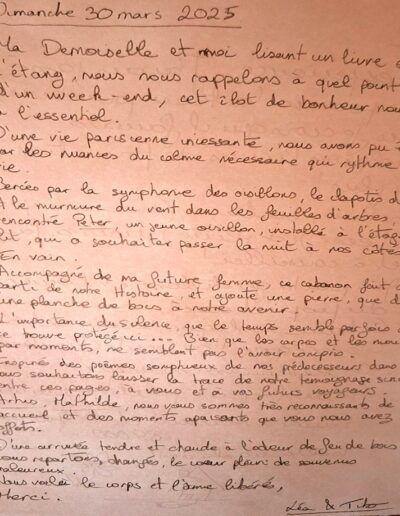 Dimanche 30 mars 2025
Ma Demoiselle et moi lisant un livre
l'étang, nous nous rappelons à quel point
d'un week-end, cet îlot de bonheur nou
à l'essentiel.
D'une vie parisienne incessante, nous avons pu
par les nuances du calme nécessaire qui rythme
vie.
Bercés par la symphonie des oisillons, le clapotis d
A le murmure du vent dans les feuilles d'arbres
rencontré Peter, un jeune oisillon, installé à l'étag
lit, qui a souhaiter passer la nuit à nos côtés
En vain.
Accompagné de ma future femme, ce cabanon fait
parti de notre Histoire, et ajoute une pierre, que d
une planche de bois à notre avenir.
L'importance du silence, que le temps semble parfois
se trouve protégé ici... Bien que les carpes et les mou
par moments, ne semblent pas l'avoir compris.
Inspirés des poèmes somptueux de nos prédécesseurs dans
nous souhaitons laisser la trace de notre témoignage sinc
entre ces pages, à vous et à vos futurs voyageurs.
Mathilde, nous vous sommes très reconnaissants de
accueil et des moments apaisants que vous nous avez
offerts.
D'une arrivée tendre et chaude à l'odeur de feu de bois
nous repartons, changés, le cœur plein de souvenirs
valeureux.
Nous voilà le corps et l'âme libérés,
Merci.
Léa &